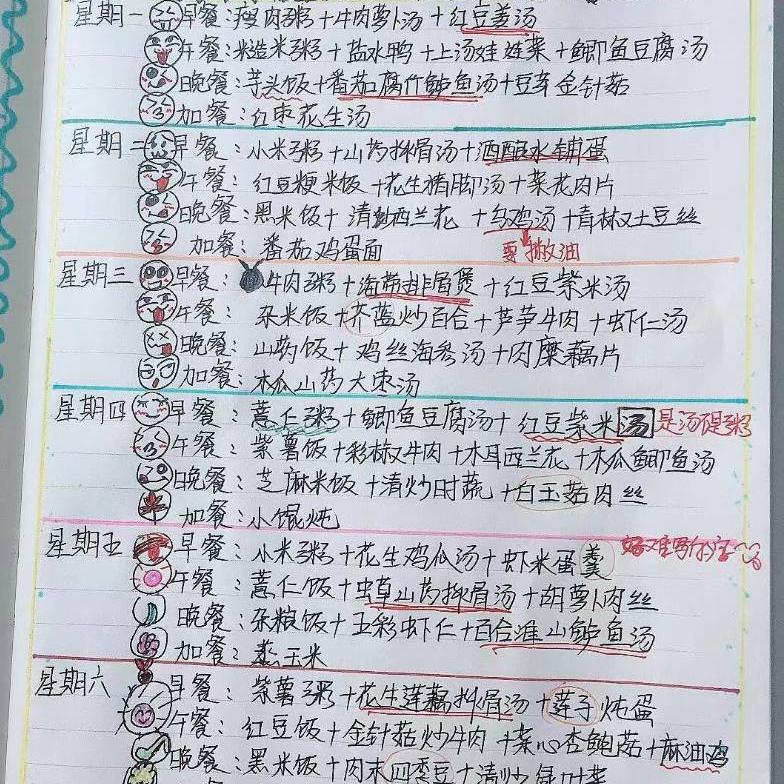 星期一 早餐:瘦肉粥+牛肉萝卜汤+红豆姜汤
午餐:糙米粥+盐水鸭+上汤娃娃菜+鲫鱼豆腐汤
晚餐:芋头饭+番茄腐竹鲈鱼汤+豆芽金针菇
加餐:红枣花生汤
星期二 早餐:小米粥+山药排骨汤+酒酿水铺蛋
午餐:红豆粳米饭+花生猪脚汤+菜花肉片
晚餐:黑米饭+清炒西兰花+乌鸡汤+青椒土豆丝
加餐:番茄鸡蛋面 要撇油
星期三 早餐:牛肉粥+海带排骨煲+红豆紫米汤
午餐:杂米饭+芥蓝炒百合+芦笋牛肉+虾仁汤
晚餐:山药饭+鸡丝海参汤+肉糜藕片
加餐:木瓜山药大枣汤
星期四 早餐:薏仁粥+鲫鱼豆腐汤+红豆紫米汤 是汤不是粥
午餐:紫薯饭+彩椒牛肉+木耳西兰花+木瓜鲫鱼汤
晚餐:芝麻米饭+清炒时蔬+白玉菇肉丝
加餐:小馄炖
星期五 早餐:小米粥+花生鸡爪汤+虾米蛋羹
午餐:薏仁饭+虫草山药排骨汤+胡萝卜肉丝
晚餐:杂粮饭+五彩虾仁+百合淮山鲈鱼汤
加餐:蒸玉米
星期六 早餐:紫薯粥+花生莲藕排骨汤+莲子炖蛋
午餐:红豆饭+金针菇炒牛肉+菜心杏鲍菇+麻油鸡
晚餐:黑米饭+肉末四季豆+清炒绿叶菜